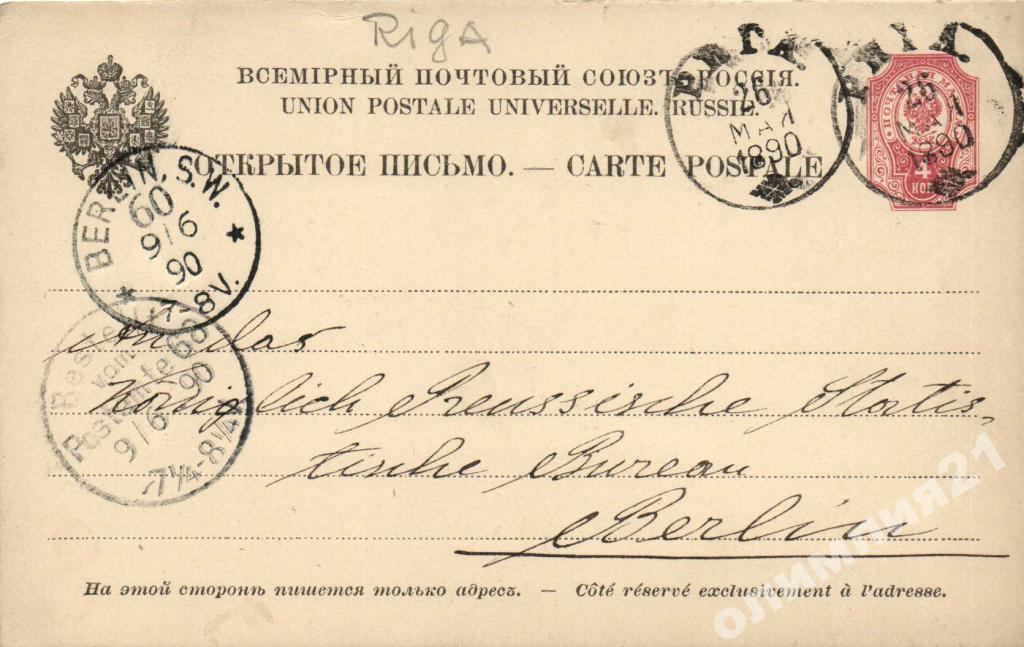 RIGA
ВСЕМІРНЫЙ ПОЧТОВЫЙ СОЮЗЪ. РОССІЯ.
UNION POSTALE UNIVERSELLE. RUSSIE.
ОТКРЫТОЕ ПИСЬМО. — CARTE POSTALE
РИГА
26
МАЯ
1890
26
МАЯ
1890
4
КОП
BERLIN. S.W.
60
9/6
90
7-8V.
Bestellt
vom
Postamte 60
9/6 90
7¼-8¼
An das
Königlich Preussische Statis-
tische Bureau
Berlin
На этой сторонѣ пишется только адресъ. — Côté réservé exclusivement à l'adresse.
олимпия21